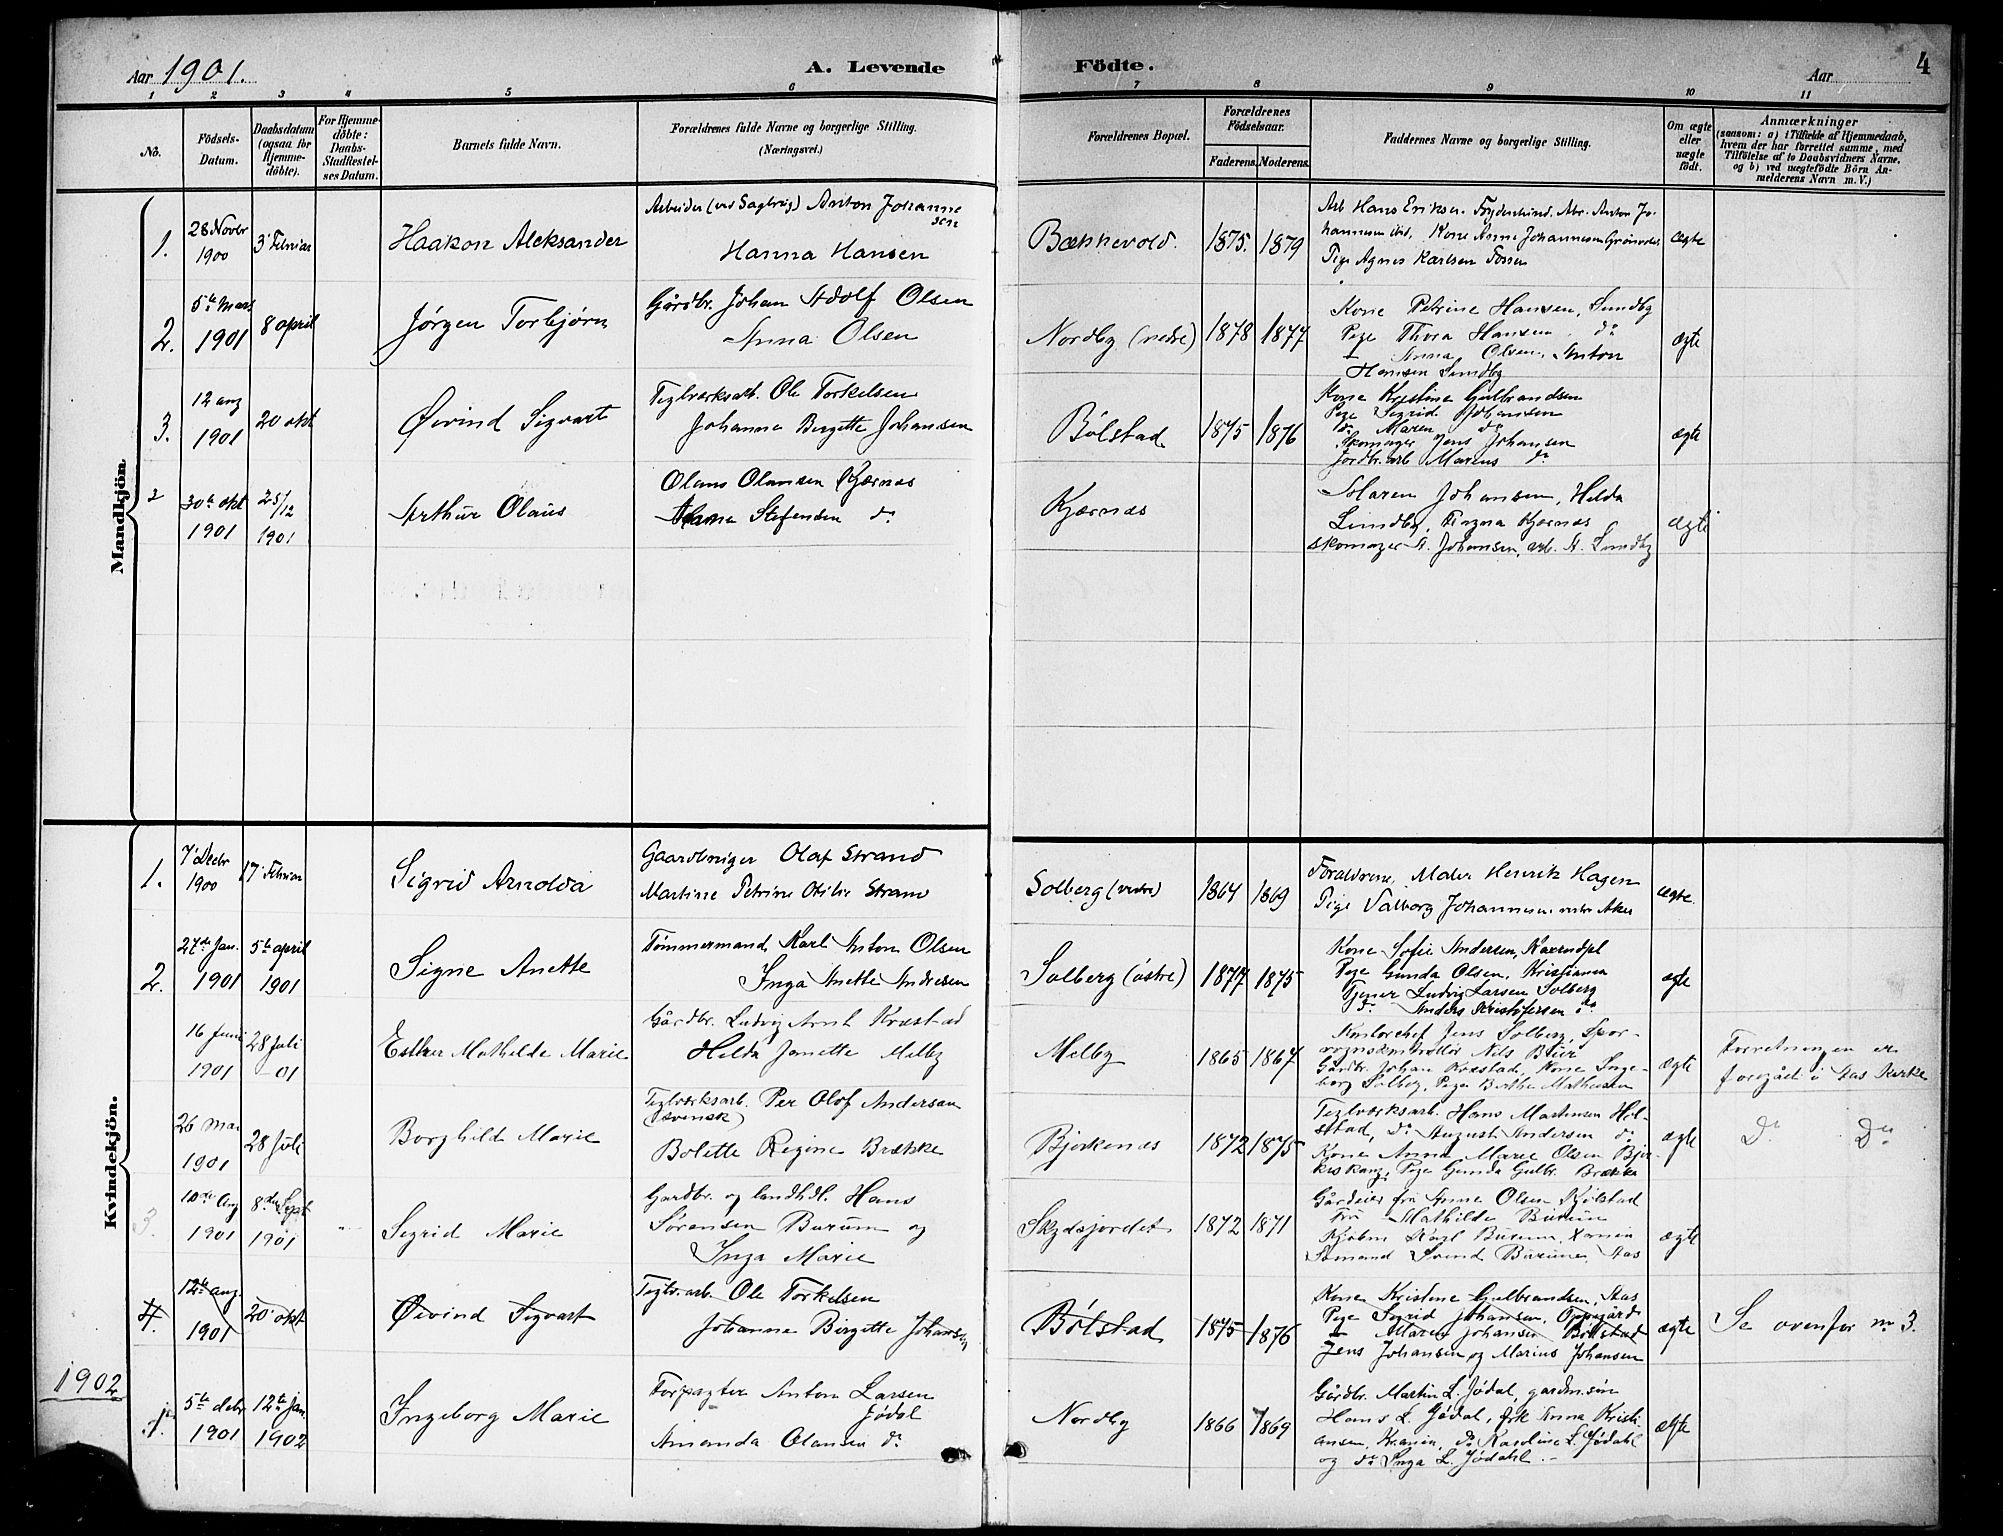 Aar 1901.
A. Levende Födte.
Aar
4
1 2 3 4 5 6 7 8 9 10 11
No.
Födsels-Datum.
Daabsdatum (ogsaa for Hjemme-döbte).
For Hjemme-döbte: Daabs-Stadfæstel-ses Datum.
Barnets fulde Navn.
Forældrenes fulde Navne og borgerlige Stilling. (Næringsvei.)
Forældrenes Bopæl.
Forældrenes Födselsaar.
Faderens. Moderens.
Faddernes Navne og borgerlige Stilling.
Om ægte eller uægte födt.
Anmærkninger
(saasom: a) i Tilfælde af Hjemmedaab,
hvem der har forrettet samme, med
Tilföielse af to Daabsvidners Navne,
og b) ved uægtefödte Börn An-
melderens Navn m. V.)
Mandkjön.
1.
28 Novbr
1900
3' Februar
Haakon Aleksander
Arbeider (ved Sagbrug) Anton Johanne
sen
Hanna Hansen
Bækkevold.
1875.
1879
Arb Hans Eriksen. Frydenlund. Abr. Anton Jo-
hannesen ibid, Kone Anne Johannesen
Pige Agnes Karlsen Fossen
ægte
2.
5te Mars
1901
8 april
Jørgen Torbjørn
Gårdbr. Johan Adolf Olsen
Anna Olsen
Nordby (nedre)
1878
1877
Kone Petrine Hansen, Lundby
Pige Thora Hansen do
Anna Olsen, Anton
Hansen Lundby
ægte
3.
12 aug
1901
20 okt
Øivind Sigvart
Teglværksarb. Ole Torkelsen
Johanne Birgitte Johansen
Bølstad
1875
1876
Kone Kristine Gulbrandsen
Pige Sigrid Johansen
do Maren do
Skomager Jens Johansen
Jordbr. arb Marius do
ægte
30te okt
1901
25/12
1901
Arthur Olaus
Olaus Olausen Kjærnes
Stefensen do
Kjærnes
Maren Johansen, Hilda
Lundby, Kjærnes
Skomager A. Johansen, arb. A. Lundby
ægte
Kvindekjön.
1.
7' Decbr
1900
17' Februar
Sigrid Arnolda
Gaardbruger Olaf Strand
Martine Petrine Otilie Strand
Solberg (vestre)
1864
1869
Forældrene, Maler Henrik Hagen
Pige Valborg Johannesen vestre Aker
ægte.
2.
27de Jan.
1901
5te april
1901
Signe Anette
Tømmermand Karl Anton Olsen
Inga Anette Andresen
Solberg (østre)
1877
1875
Kone Sofie Andersen,
Pige Gunda Olsen, Kristiania
Tjener Ludvig Larsen Solberg
do Anders Kristofersen do
ægte
16 Juni
1901
28 Juli
01
Esther Mathilde Marie
Gårdbr. Ludvig Arnt Kroestad
Hilda Janette Melby
Melby
1865
1867
Kontorchef Jens Solberg, Spor-
vognskontrollør Nils Bher
Gårdbr. Johan Kroestad, Kone Inge-
borg Solberg, Pige Berthe Mathesen
ægte
Forretningen er
foregået i Aas Kirke
26 Mai
1901
28 Juli
Borghild Marie
Teglværksarb. Per Olof Andersen
(svensk)
Bolette Regine Brække
Bjerkenes
1872
1875
Teglværksarb. Hans Martinsen Hel-
stad, do August Andersen do
Kone Anna Marie Olsen Bjer-
Pige Gunda Gulbr. Brække
ægte
Do Do
3.
10de Aug
1901
8de Sept
1901
Sigrid Marie
Gårdbr. og landhdl. Hans
Sørensen Burum og
Inga Marie
Skydsjordet
1872
1871
Gårdeier fru Anne Olsen Kjølstad
Fru Mathilde Burum
Kjøbm. Karl Burum, Xania
Sømand Svend Burum, Aas
ægte
4.
12te aug.
1901
20 okt
Øivind Sigvart
Teglv. arb. Ole Torkelsen
Johanne Birgitte Johansen
Bølstad
1875
1876
Kone Kristine Gulbrandsen, Aas
Pige Sigrid Johansen, Oppegård
Maren Johansen Bølstad
Jens Johansen og Marius Johansen
ægte
Se ovenfor no 3.
1902
1.
5te debr
1901
12te jan
1902
Ingeborg Marie
Forpagter Anton Larsen
Jødal
Amanda Olausen do
Nordby
1866
1869
Gårdbr. Martin L. Jødal, gårdm.søn
Hans L. Jødal, frk Anna Kristi-
ansen, Krania, do Karoline L. Jødahl
og do Inga L. Jødahl.
ægte